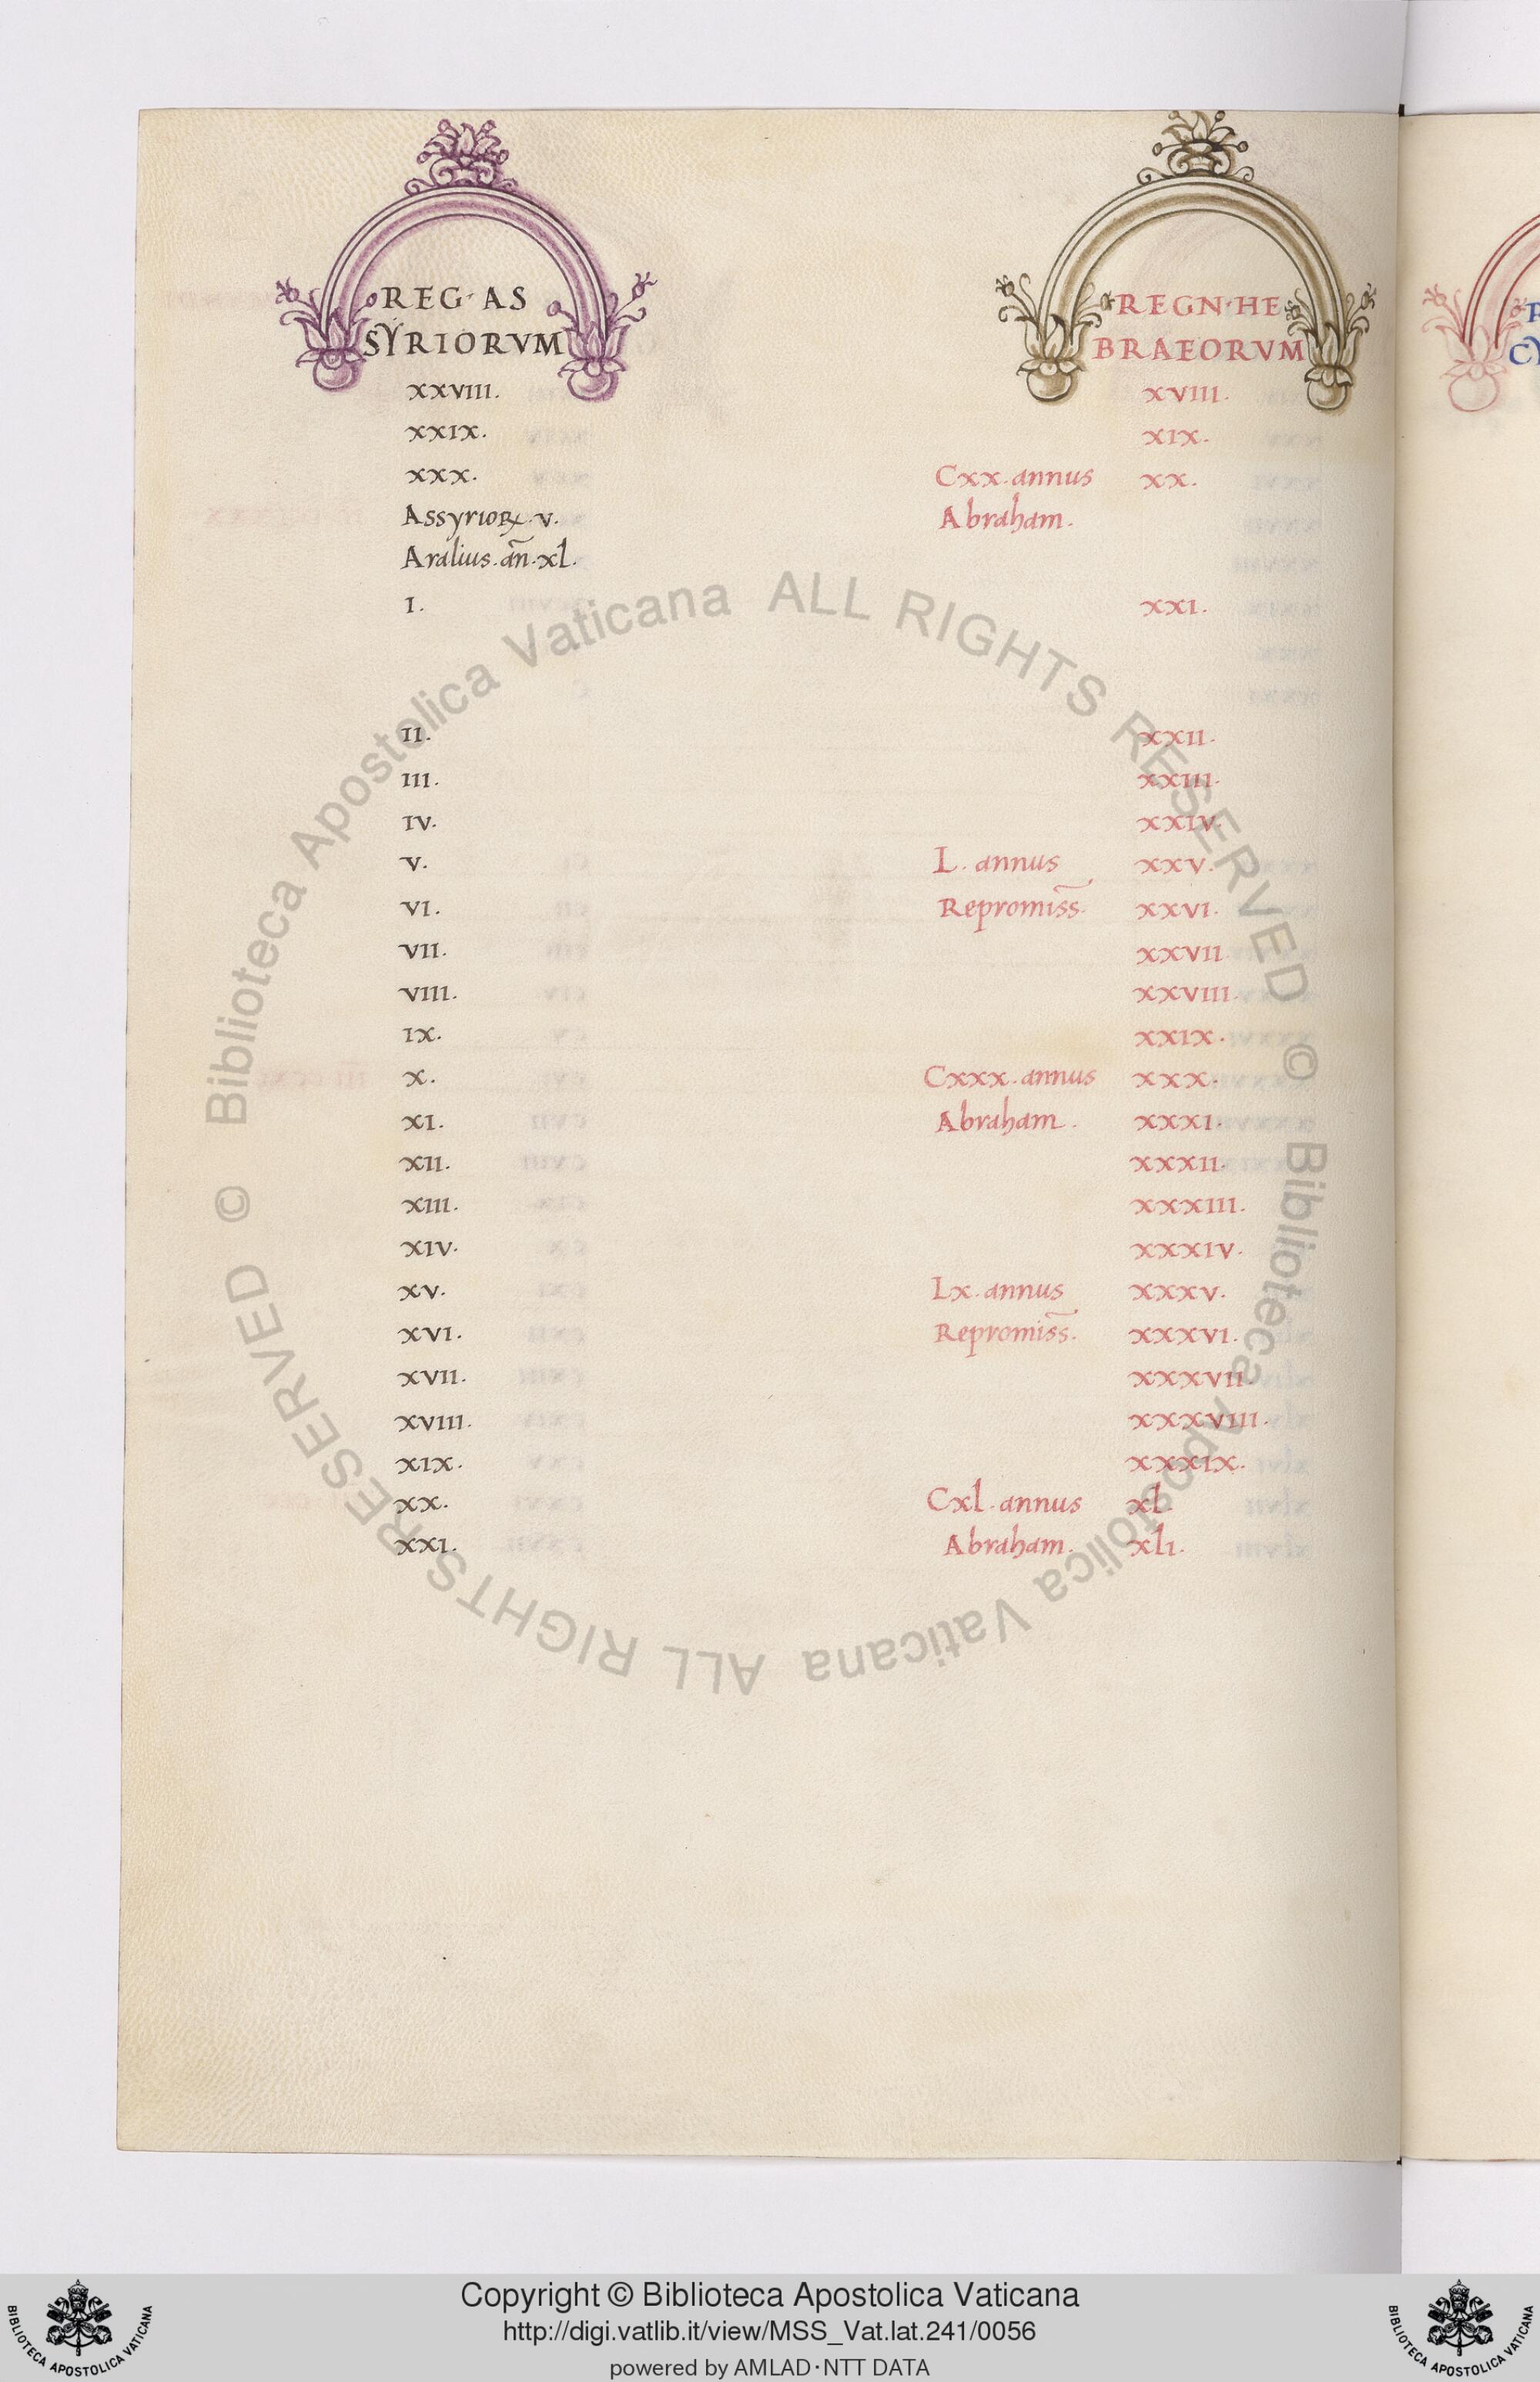 REG· AS
SYRIORVM
XXVIII.
XXIX.
XXX.
Assyrioꝝ. v.
Aralius. añ. xl.
I.
II.
III.
IV.
V.
VI.
VII.
VIII.
IX.
X.
XI.
XII.
XIII.
XIV.
XV.
XVI.
XVII.
XVIII.
XIX.
XX.
XXI.
REGN· HE
BRAEORVM
XVIII.
XIX.
Cxx. annus XX.
Abraham.
XXI.
XXII.
XXIII.
XXIV.
L. annus XXV.
Repromis̃s. XXVI.
XXVII
XXVIII.
XXIX.
Cxxx. annus XXX.
Abraham. XXXI.
XXXII.
XXXIII.
XXXIV.
Lx. annus XXXV.
Repromis̃s. XXXVI.
XXXVII.
XXXVIII.
XXXIX.
Cxl. annus xl.
Abraham. xli.
© Biblioteca Apostolica Vaticana ALL RIGHTS RESERVED
© Biblioteca Apostolica Vaticana ALL RIGHTS RESERVED
Copyright © Biblioteca Apostolica Vaticana
http://digi.vatlib.it/view/MSS_Vat.lat.241/0056
powered by AMLAD·NTT DATA
BIBLIOTECA APOSTOLICA VATICANA
BIBLIOTECA APOSTOLICA VATICANA